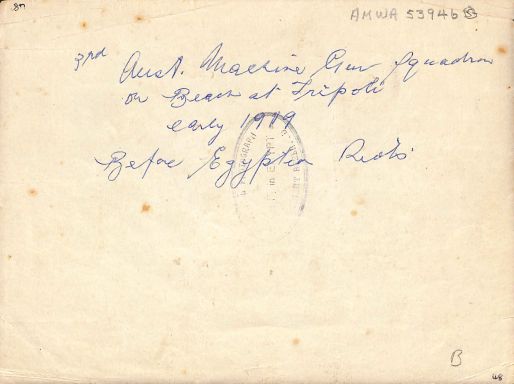 .8n
AMWA 53946B
3rd Aust. Machine Gun Squadron
on Beach at Tripoli
early 1919
Before Egyptian Riots
IN EGYPT
B
48